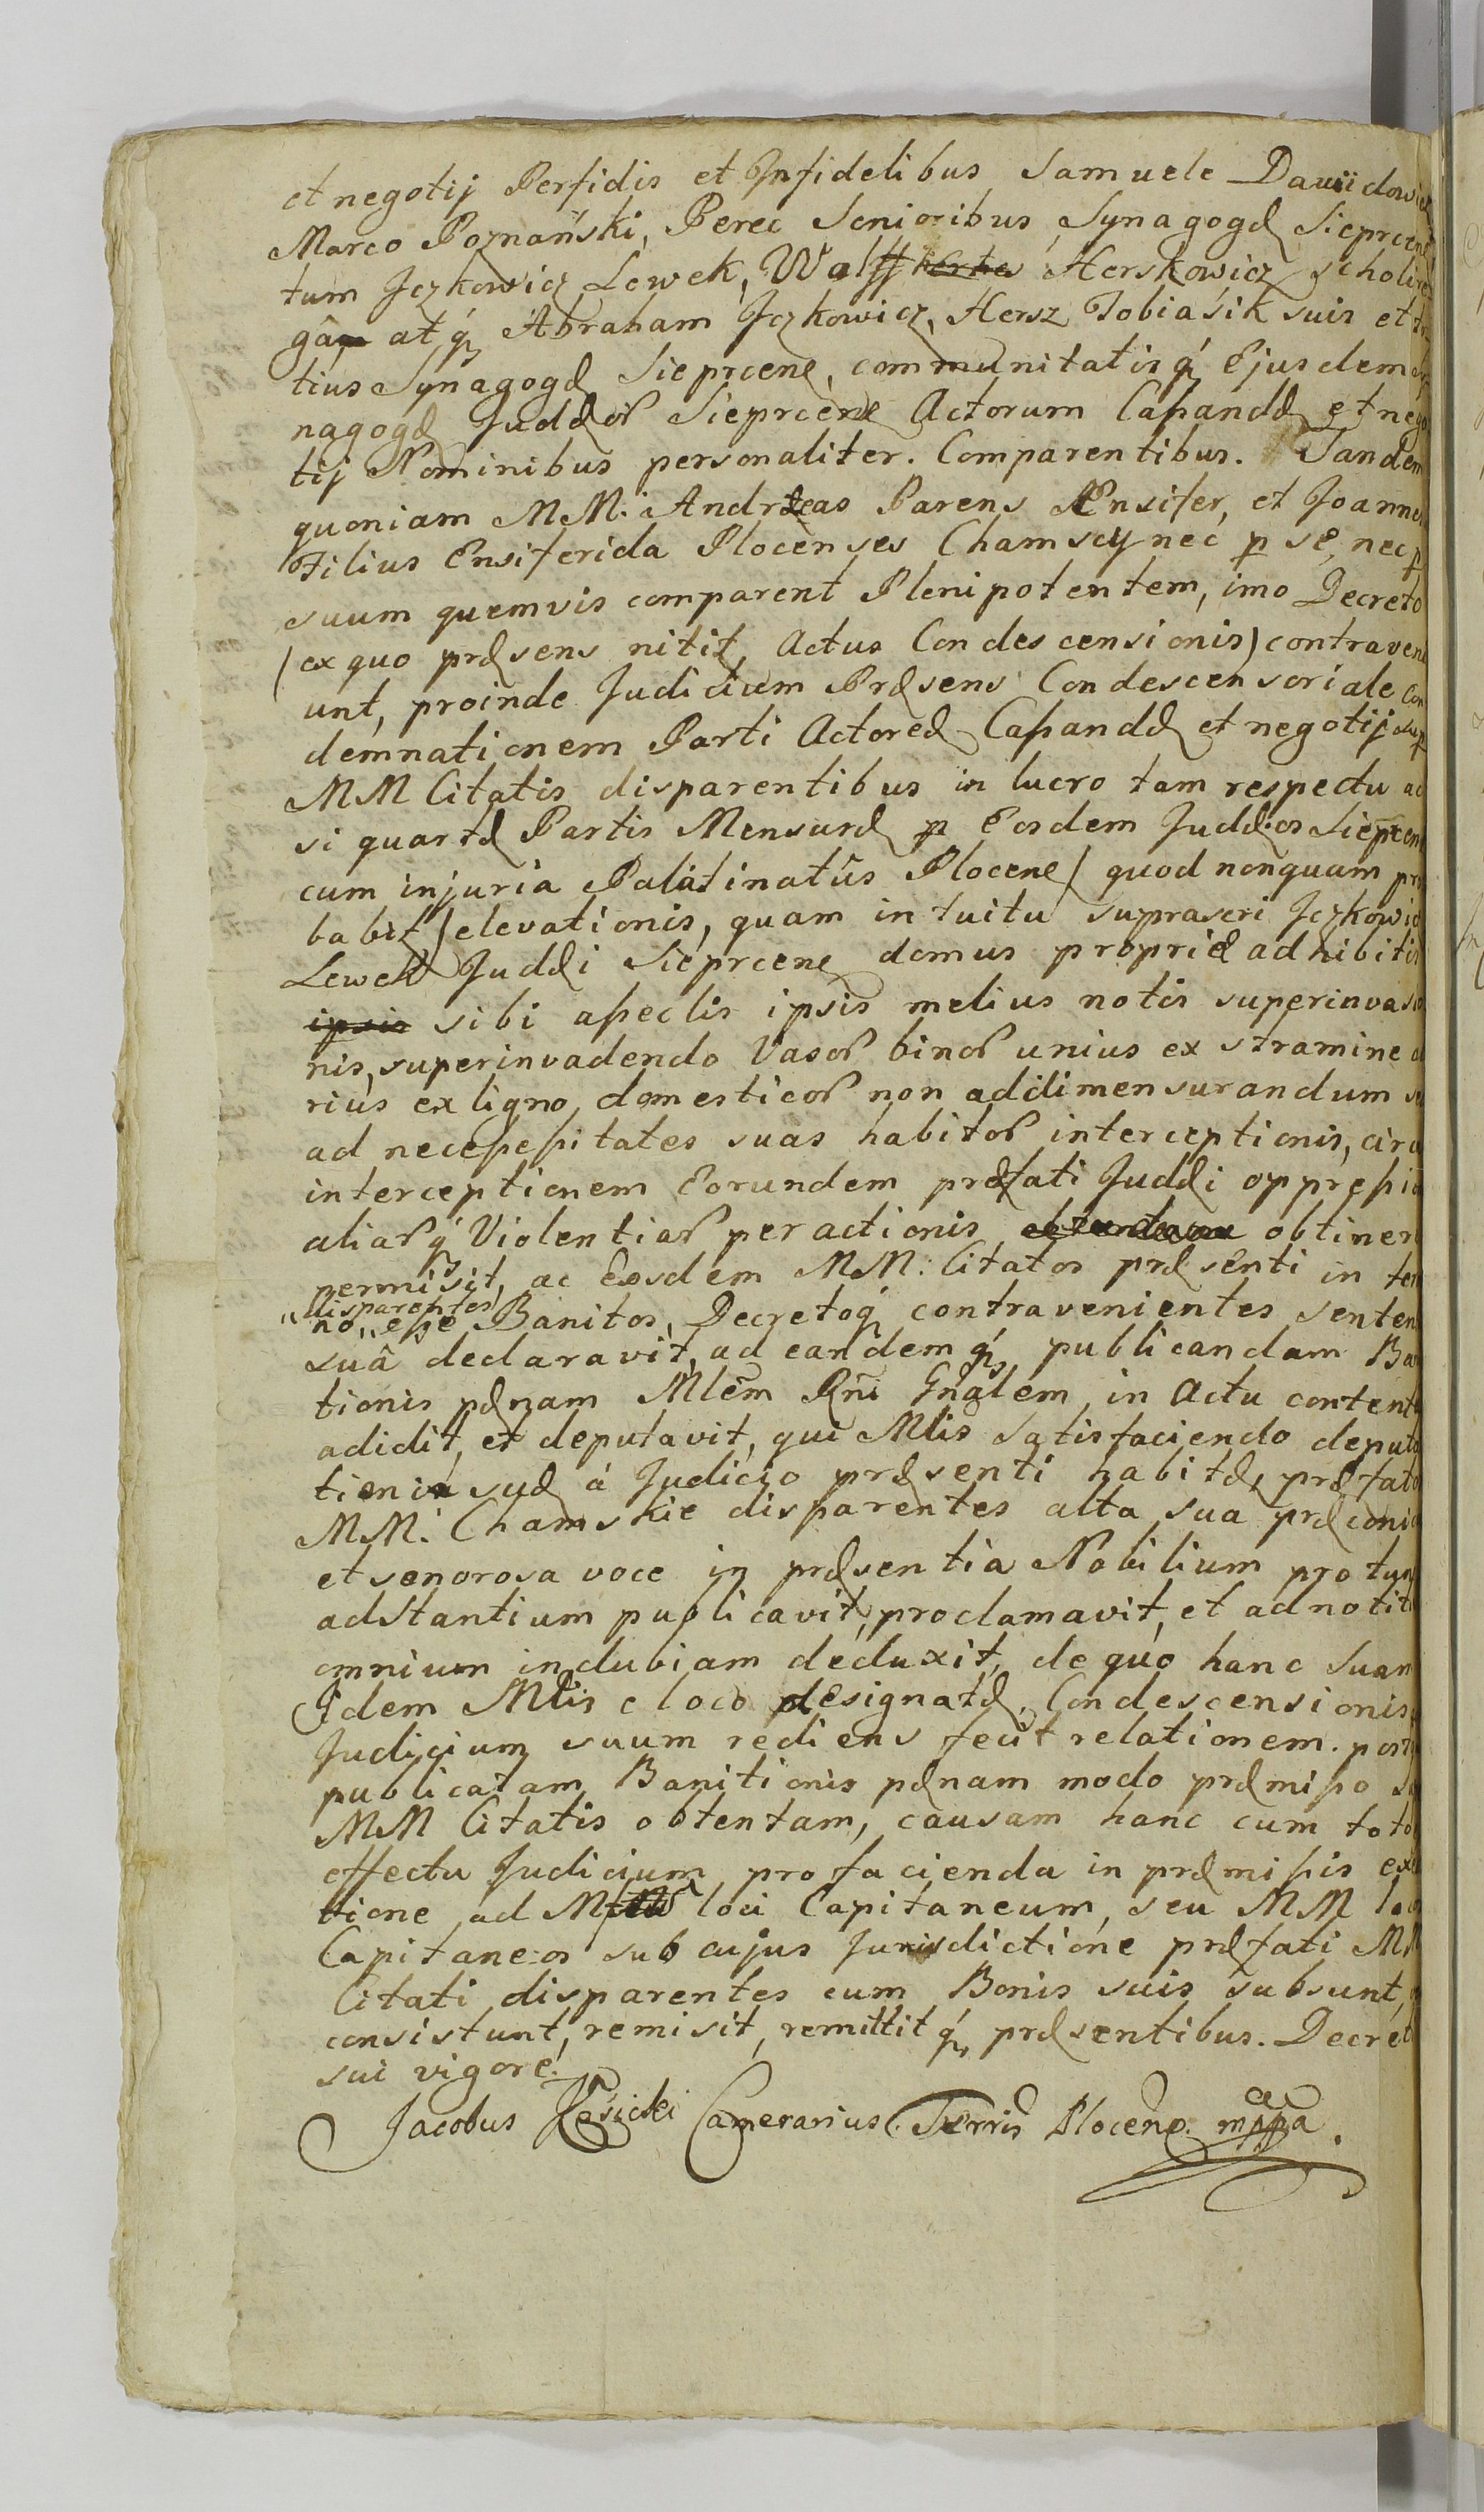 et negotij Perfidis et Infidelibus Samuele Dawidowicz
Marco Poznański, Perec Senioribus Synagogæ Sieprcen
tum Jczkowicz Lewek, Wolff Herskowicz scholire
gâ atq Abraham Jczkowicz, Hersz Tobiasik suis et to
tius Synagogæ Sieprcene, communitatisq Ejusdem Sy
nagogæ Judæor Sieprcene Actorum Caßandæ et nego
tij Nominibus personaliter. Comparentibus. Tandem
quoniam MM. Andreas Parens Ensifer, et Joannes
Filius Ensiferida Plocenses Chamscy nec p se, nec p
suum quemvis comparent Plenipotentem, imo Decreto
/ex quo præsens nitit, Actus Condescensionis/ contraveni
unt, proinde Judicium Præsens Condescensoriale Con
demnationem Parti Actoreæ Caßandæ et negotij sup
MM Citatis disparentibus in lucro tam respectu ac
si quartæ Partis Mensuræ p Eosdem Judæos Sieprcen
cum injuria Palatinatûs Plocene / quod nonquam pro
babit / elevationis, quam intuitu suprascri Jczkowicz
Lewek Judæi Sieprcene domus propriæ adhibitis
ipsis sibi aßeclis ipsis melius notis superinvasio
nis, superinvadendo Vasor binor unius ex stramine al
rius ex ligno domesticor non addimensurandum se
ad neceßeßitates suas habitor interceptionis, circa
interceptionem Eorundem præfati Judæi oppreßio
aliarq Violentiar peractionis obtinere
permisit, ac Eosdem MM: Citatos præsenti in ter
„disparentes
no„ eße Banitos, Decretoq contravenientes senten
suâ declaravit, ad eandemq publicandam Bani
tionis pænam Mlem Rni Gnalem in Actu content
adidit, et deputavit, qui Mlis satisfaciendo deputa
tioni suæ á Judicio præsenti habitæ, præfato
MM. Chamskie disparentes alta sua præconia
et senorosa voce in præsentia Nobilium pro tunc
adstantium publicavit, proclamavit, et ad notit
omnium indubiam deduxit, de quo hanc Suam
Idem Mlis e loco designatæ Condescensionis
Judicium suum rediens fecit relationem. post
publicatam Banitionis pænam modo præmißo su
MM Citatis obtentam, causam hanc cum toto
effectu Judicium pro facienda in præmißis exe
tione ad loci Capitaneum, seu MM loc
Capitaneos sub cujus Jurisdictione præfati MM
Citati disparentes cum Bonis suis subsunt,
consistunt, remisit, remittitq præsentibus. Decret
sui vigore.
Jacobus Camerarius Terris Plocens mppa